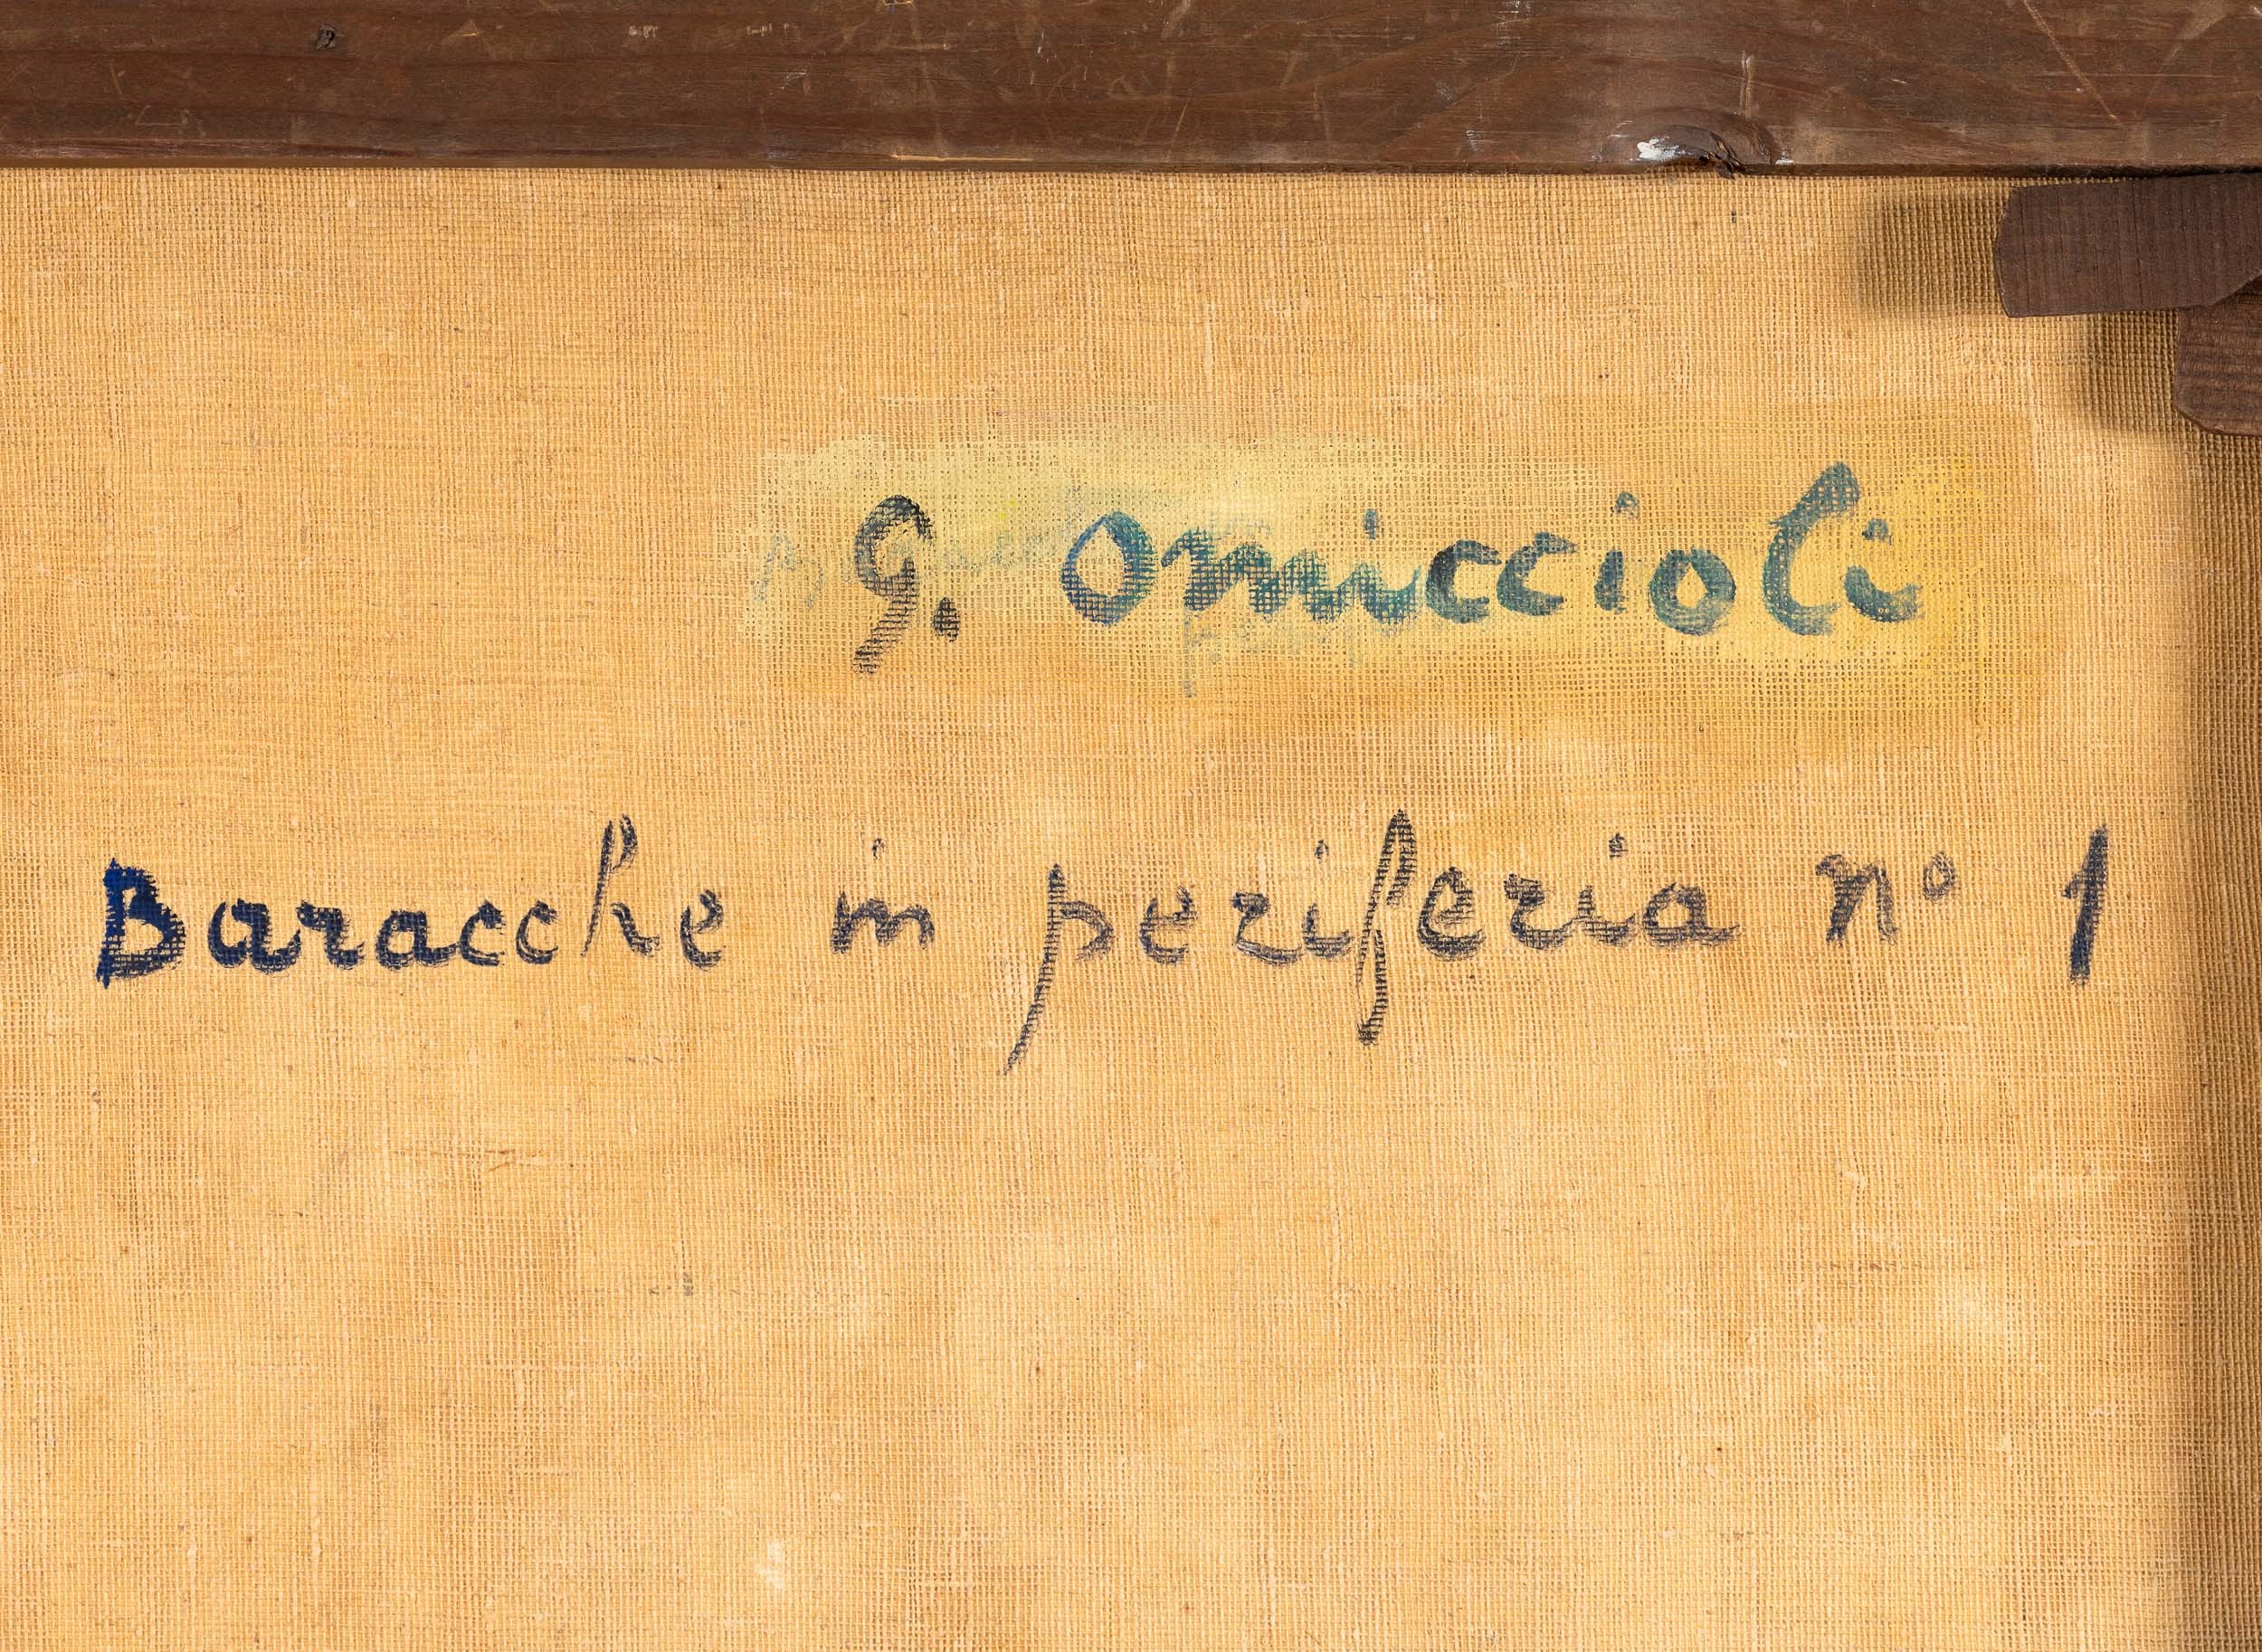 G. Omiccioli
Baracche in periferia n° 1